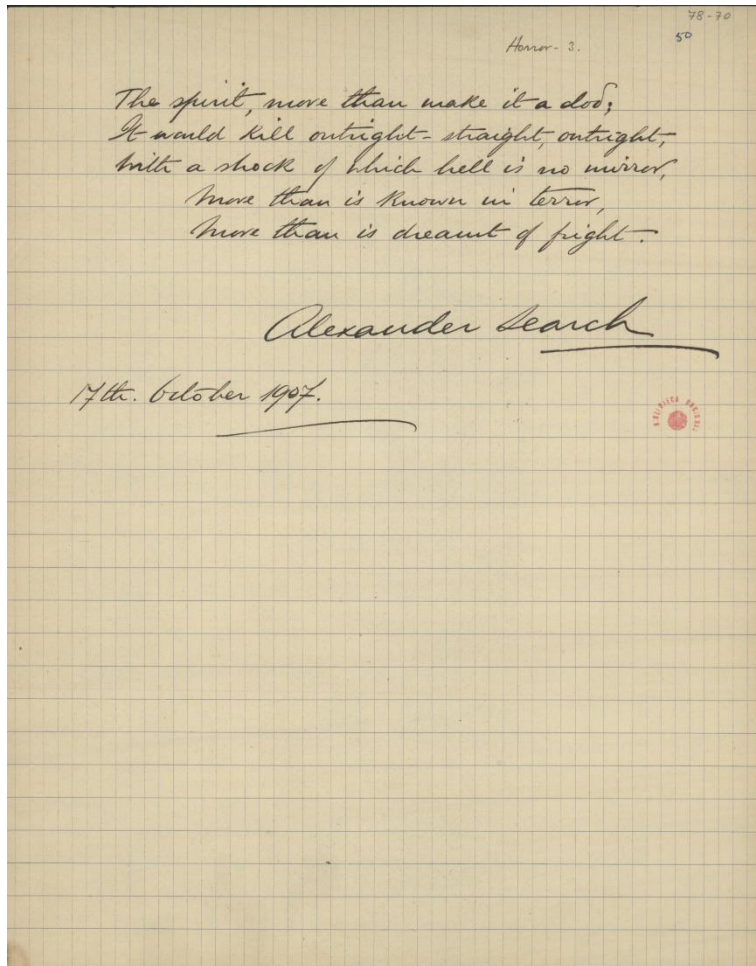 78-70
Horror - 3.
50
The spirit, more than make it a clod;
It would kill outright - straight, outright,
With a shock of which hell is no mirror,
More than is known in terror,
More than is dreamt of fright.
Alexander Search
17th. October 1907.